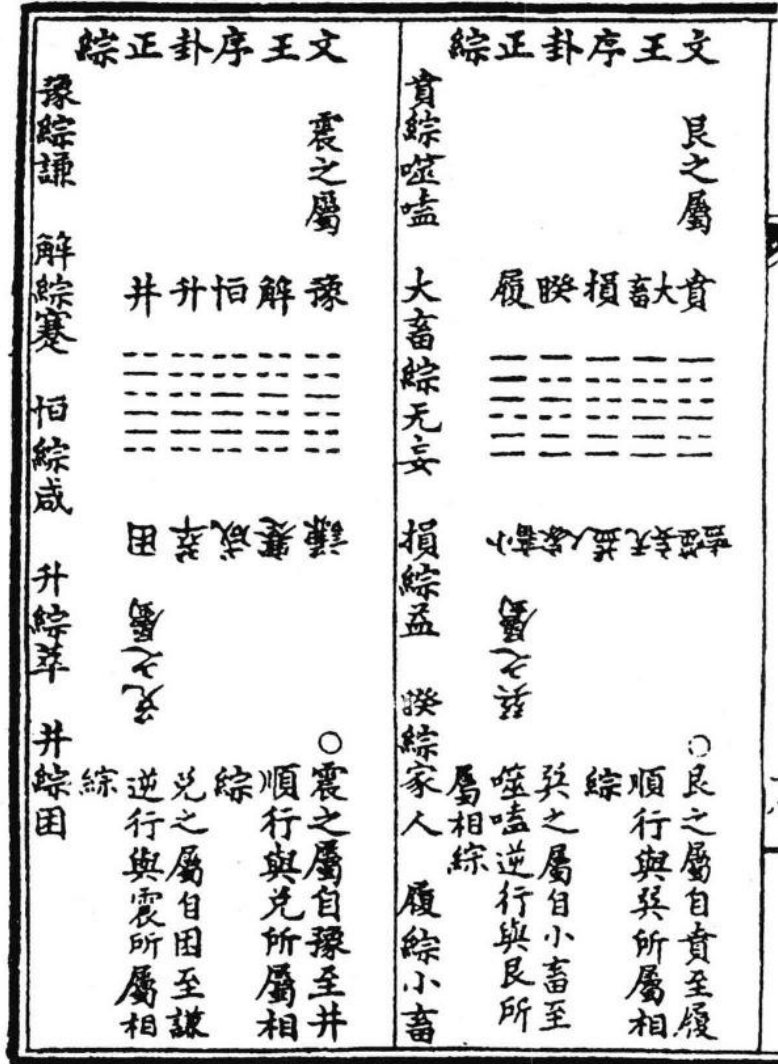 文王序卦正綜
艮之屬
賁
大畜
損
睽
履
噬嗑
无妄
益
家人
小畜
巽之屬
○艮之屬自賁至履
順行與巽所屬相
綜
巽之屬自小畜至
噬嗑逆行與艮所
屬相綜
賁綜噬嗑 大畜綜无妄 損綜益 睽綜家人 履綜小畜
文王序卦正綜
震之屬
豫
解
恒
升
井
謙
蹇
咸
萃
困
兌之屬
○震之屬自豫至井
順行與兌所屬相
綜
兌之屬自困至謙
逆行與震所屬相
綜
豫綜謙 解綜蹇 恒綜咸 升綜萃 井綜困